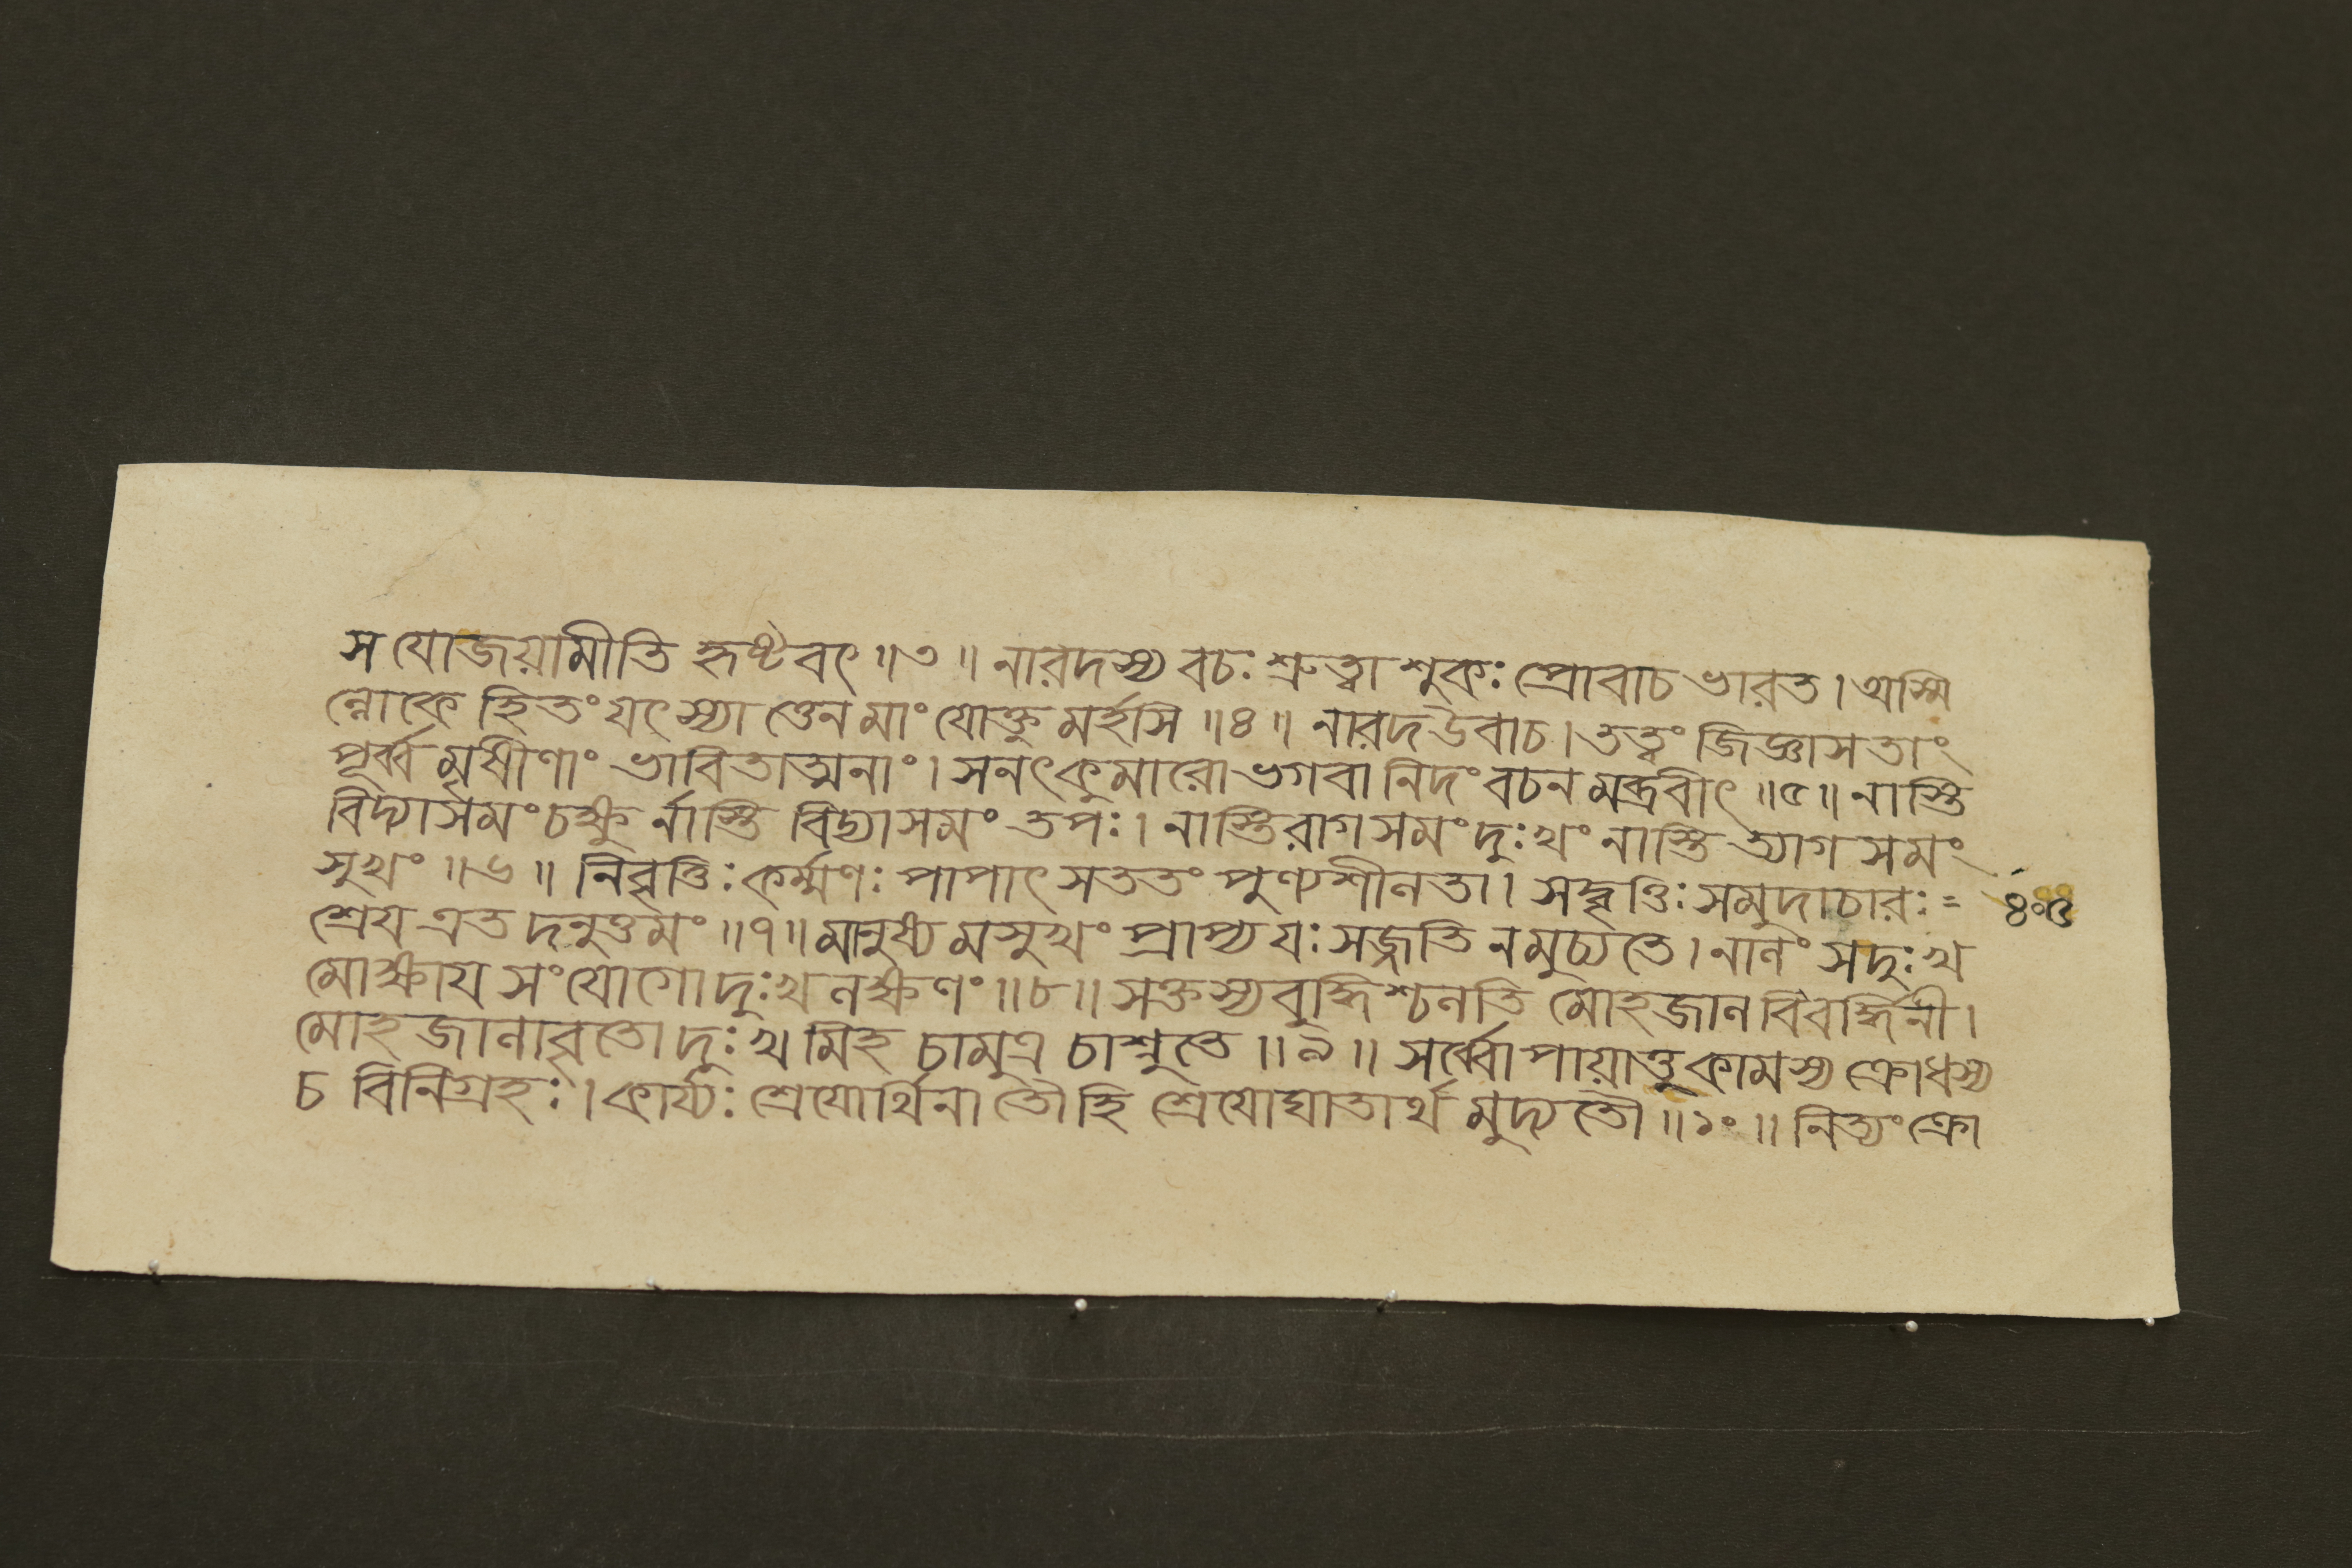 স যোজয়ামীতি হৃষ্টবৎ ॥৩॥ নারদস্য বচঃ শ্রুত্বা শুকঃ প্রোবাচ ভারত। অস্মি
ল্লোকে হিতং যৎ স্যা ত্তেন মাং যোক্তু মর্হসি ॥৪॥ নারদ উবাচ। তত্ত্বং জিজ্ঞাসতাং
পূর্ব্ব মৃষীণাং ভাবিতাত্মনাং। সনৎকুমারো ভগবা নিদং বচন মব্রবীৎ ॥৫॥ নাস্তি
বিদ্যাসমং চক্ষু র্নাস্তি বিদ্যাসমং তপঃ। নাস্তি রাগসমং দুঃখং নাস্তি ত্যাগ সমং
সুখং ॥৬॥ নিবৃত্তিঃ কর্ম্মণঃ পাপাৎ সততং পুণ্যশীলতা। সদ্বৃত্তিঃ সমুদাচারঃ =
৪০৫
শ্রেয এত দনুত্তমং ॥৭॥ মানুষ্য মসুখং প্রাপ্য যঃ সজ্জতি ন মুচ্যতে। নালং স দুঃখ
মোক্ষায সংযোগো দুঃখলক্ষণং ॥৮॥ সক্তস্য বুদ্ধি শ্চলতি মোহজাল বিবর্দ্ধিনী।
মোহজালাবৃতো দুঃখ মিহ চামুত্র চাশ্নুতে ॥৯॥ সর্ব্বোপায়াত্তু কামস্য ক্রোধস্য
চ বিনিগ্রহঃ। কার্য্যঃ শ্রেযোর্থিনা তৌ হি শ্রেযোঘাতার্থ মুদ্যতৌ ॥১০॥ নিত্যং ক্রো